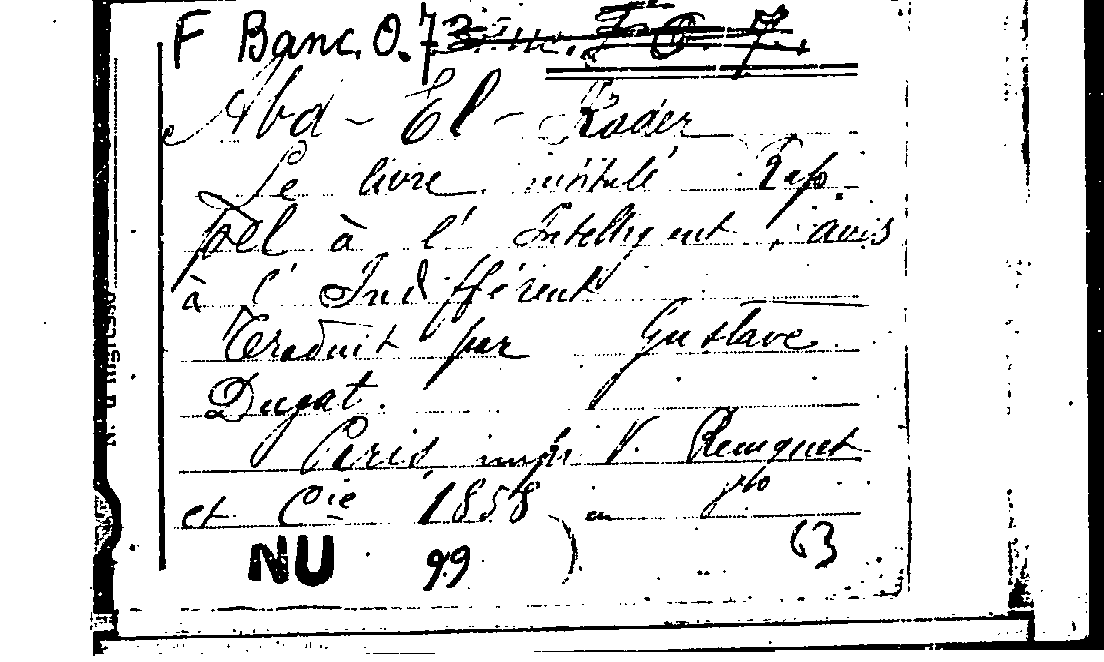 F Banc. O. 73
Abd - El - Kader
Le livre intitulé Rap
pel à l' Intelligent, avis
à l' Indifférent
Traduit par Gustave
Dugat.
Paris, impr V. Remquet
et Cie 1858 in
NU 99 63
N. d'ingresso